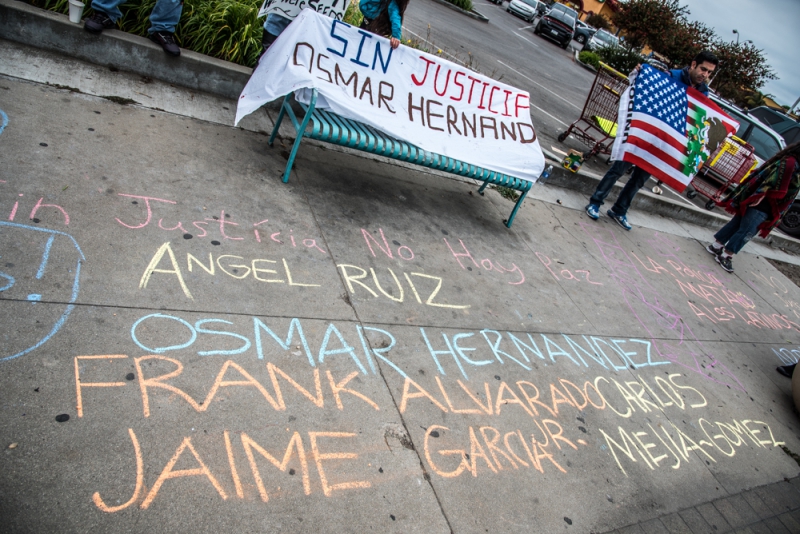 SIN JUSTICIA
OSMAR HERNAND
in Justicia No Hay Paz
ANGEL RUIZ
OSMAR HERNANDEZ
FRANK ALVARADO
CARLOS
JAIME GARCIA JR.
MEJIA-GOMEZ
LA POLICIA